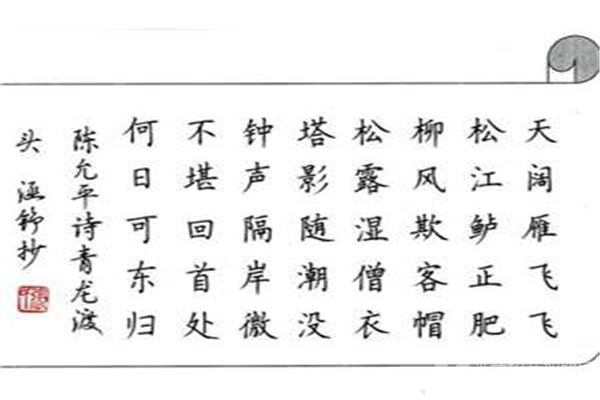 天阔雁飞飞
松江鲈正肥
柳风欺客帽
松露湿僧衣
塔影随潮没
钟声隔岸微
不堪回首处
何日可东归
陈允平诗青龙渡
头 涵 抄